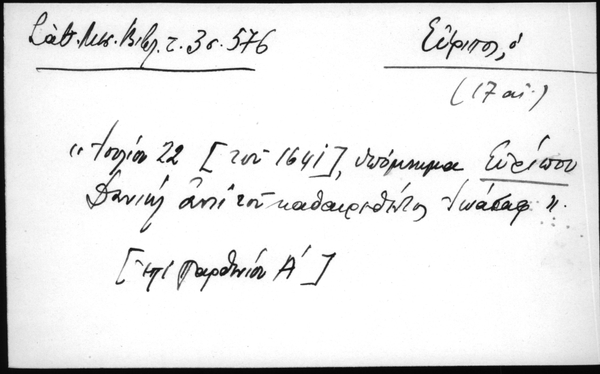 Σάθ. Μεσ. Βιβλ. τ. 3 σ. 576
Εὔριπος, ὁ
(17 αἰ.)
"Ἰουλίου 22 [τοῦ 1641], ὑπόμνημα Εὐρίπου
Δανιήλ ἀντί τοῦ καθαιρεθέντος Ἰωάσαφ".
[ἐπί Παρθενίου Α΄]